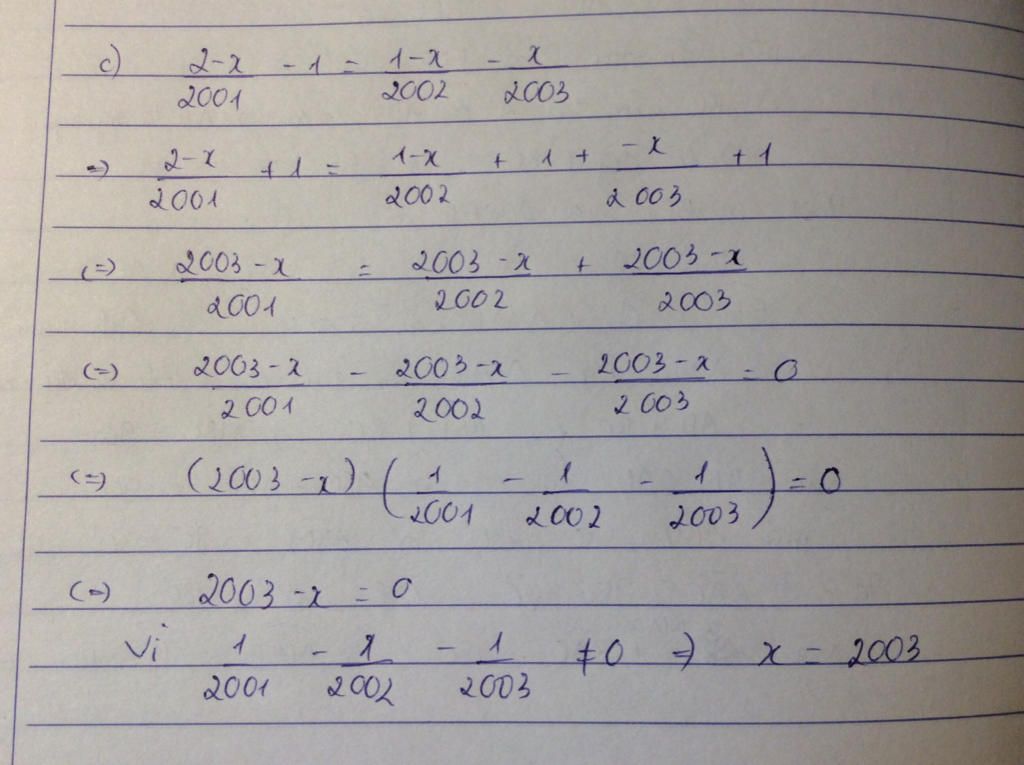 c) \frac{2-x}{2001} - 1 = \frac{1-x}{2002} - \frac{x}{2003}
=) \frac{2-x}{2001} + 1 = \frac{1-x}{2002} + 1 + \frac{-x}{2003} + 1
(=) \frac{2003-x}{2001} = \frac{2003-x}{2002} + \frac{2003-x}{2003}
(=) \frac{2003-x}{2001} - \frac{2003-x}{2002} - \frac{2003-x}{2003} = 0
(=) (2003-x) (\frac{1}{2001} - \frac{1}{2002} - \frac{1}{2003}) = 0
(=) 2003-x = 0
Vì \frac{1}{2001} - \frac{1}{2002} - \frac{1}{2003} ≠ 0 => x = 2003